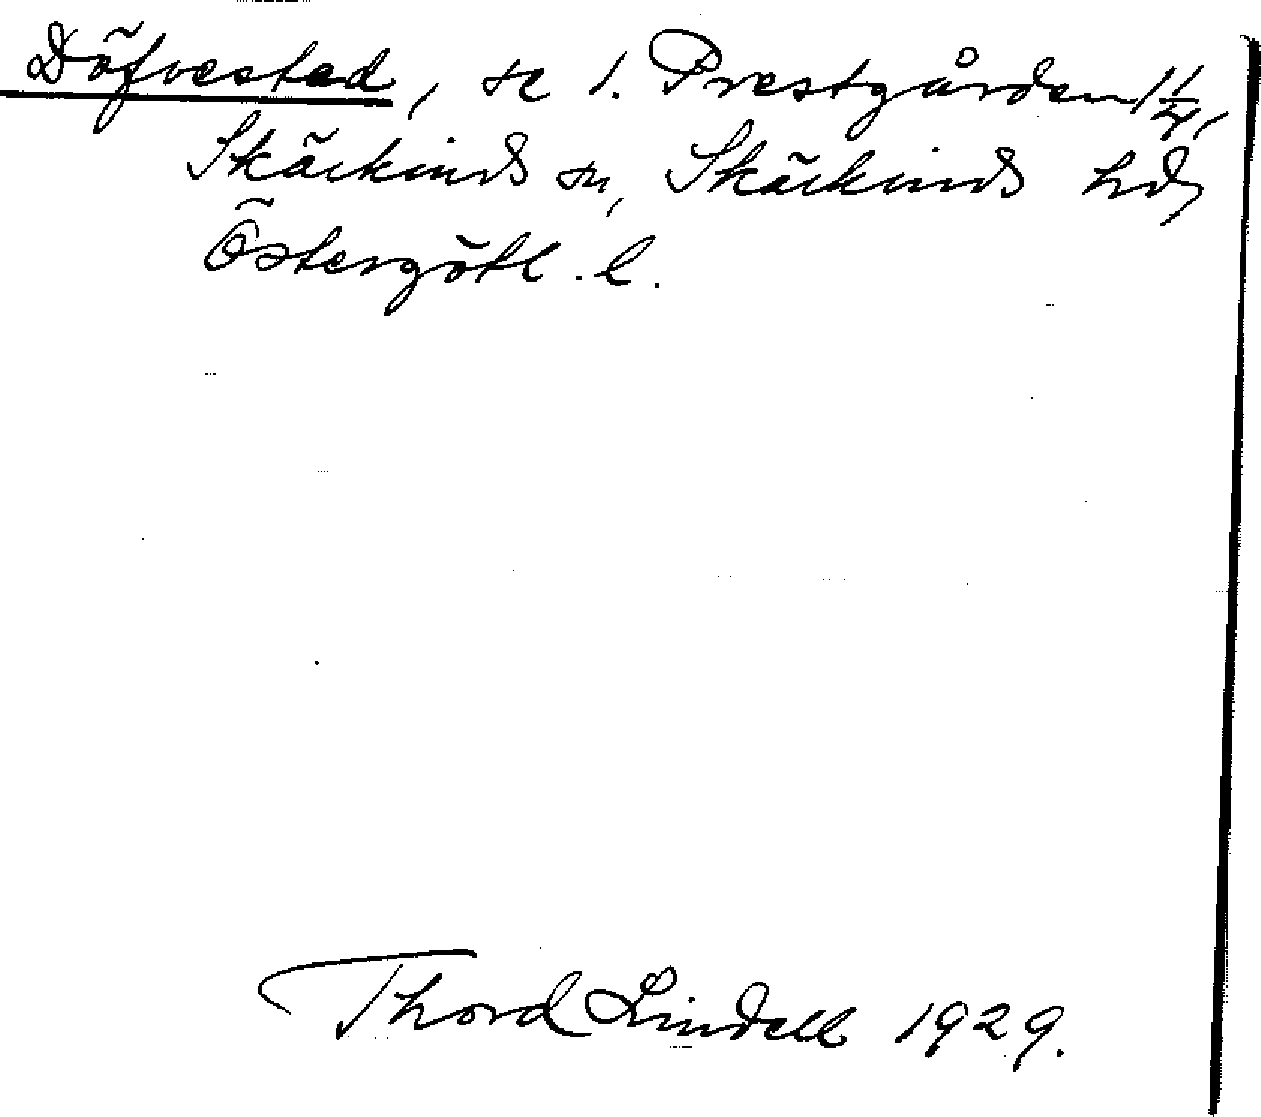 Döfvestad, se 1. Prestgården 1 1/4,
Skäckinds sn, Skäckinds hd,
Östergötl. l.
Thord Lindell 1929.